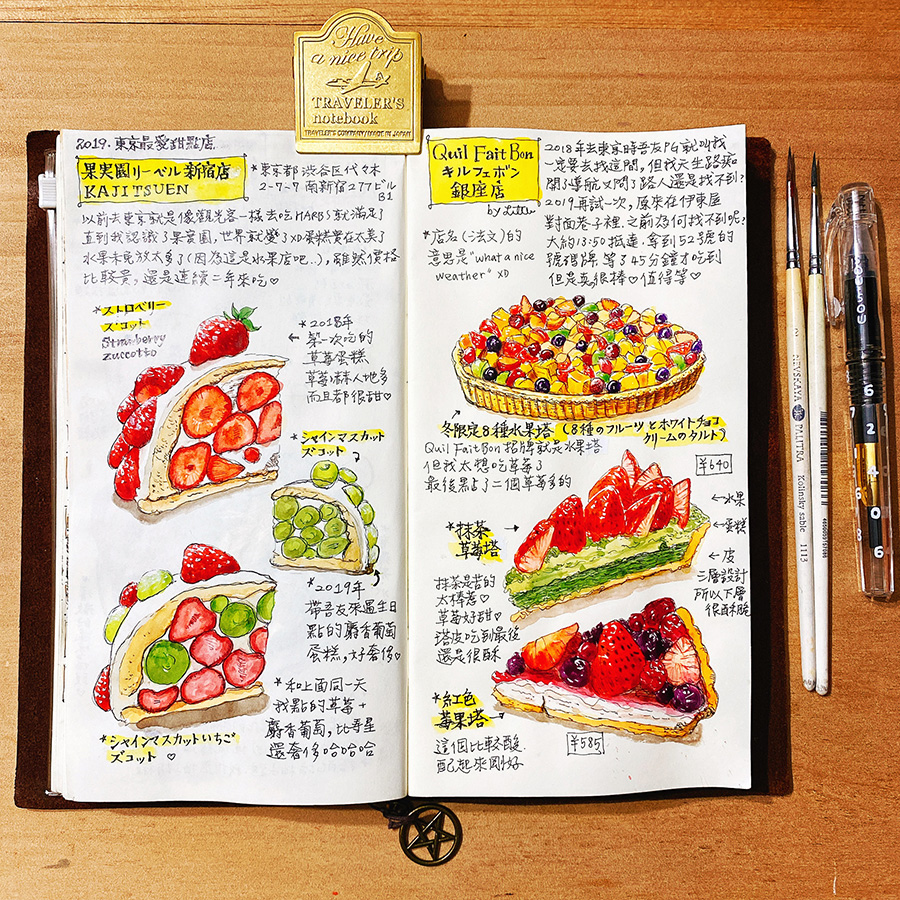 Have
a nice trip
TRAVELER'S
notebook
TRAVELER'S COMPANY MADE IN JAPAN
2019.東京最愛甜點店
果実園リーベル 新宿店
KAJITSUEN
*東京都渋谷区代々木
2-7-7 南新宿277ビル
B1
以前去東京就是像觀光客一樣去吃HARBS就滿足了
直到我認識了果實園,世界就變了XD蛋糕實在太美了
水果未免放太多了(因為這是水果店吧..),雖然價格
比較貴,還是連續二年來吃♡
*ストロベリー
ズコット
Strawberry
Zuccotto
*2018年
←第一次吃的
草莓蛋糕
草莓嚇人地多
而且都很甜♡
*シャインマスカット
ズコット
*2019年
帶吾友來過生日
點的麝香葡萄
蛋糕,好奢侈♡
*和上面同一天
我點的草莓+
麝香葡萄,比壽星
還奢侈哈哈哈
*シャインマスカットいちご
ズコット ♡
Quil Fait Bon
キルフェボン
銀座店
by Little
*店名(法文)的
意思是"what a nice
weather" XD
2018年去東京時吾友PG就叫我
一定要去找這間,但我天生路痴
開了導航又問了路人還是找不到?
2019再試一次,原來在伊東屋
對面巷子裡.之前為何找不到呢?
大約13:50抵達.拿到52號的
號碼牌 等了45分鐘才吃到
但是真很棒♡值得等♡
冬限定8種水果塔 (8種のフルーツとホワイトチョコ
クリームのタルト)
Quil Fait Bon 招牌就是水果塔
但我太想吃草莓了
最後點了二個草莓多的
¥640
*抹茶 →
草莓塔
←水果
←蛋糕
←皮
三層設計
所以下層
很酥脆
抹茶是苦的
太棒惹♡
草莓好甜♡
塔皮吃到最後
還是很酥
*紅色
莓果塔→
¥585
這個比較酸
配起來剛好
NEVSKAYA PALITRA Kolinsky sable 1113
4690688157081